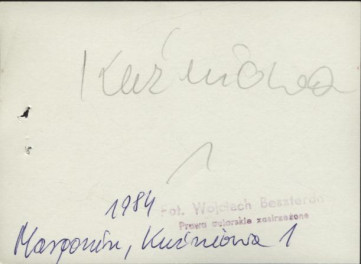 Kuźniowa
1
1984
fot. Wojciech Beszterda
Prawa autorskie zastrzeżone
Margonin, Kuźniowa 1